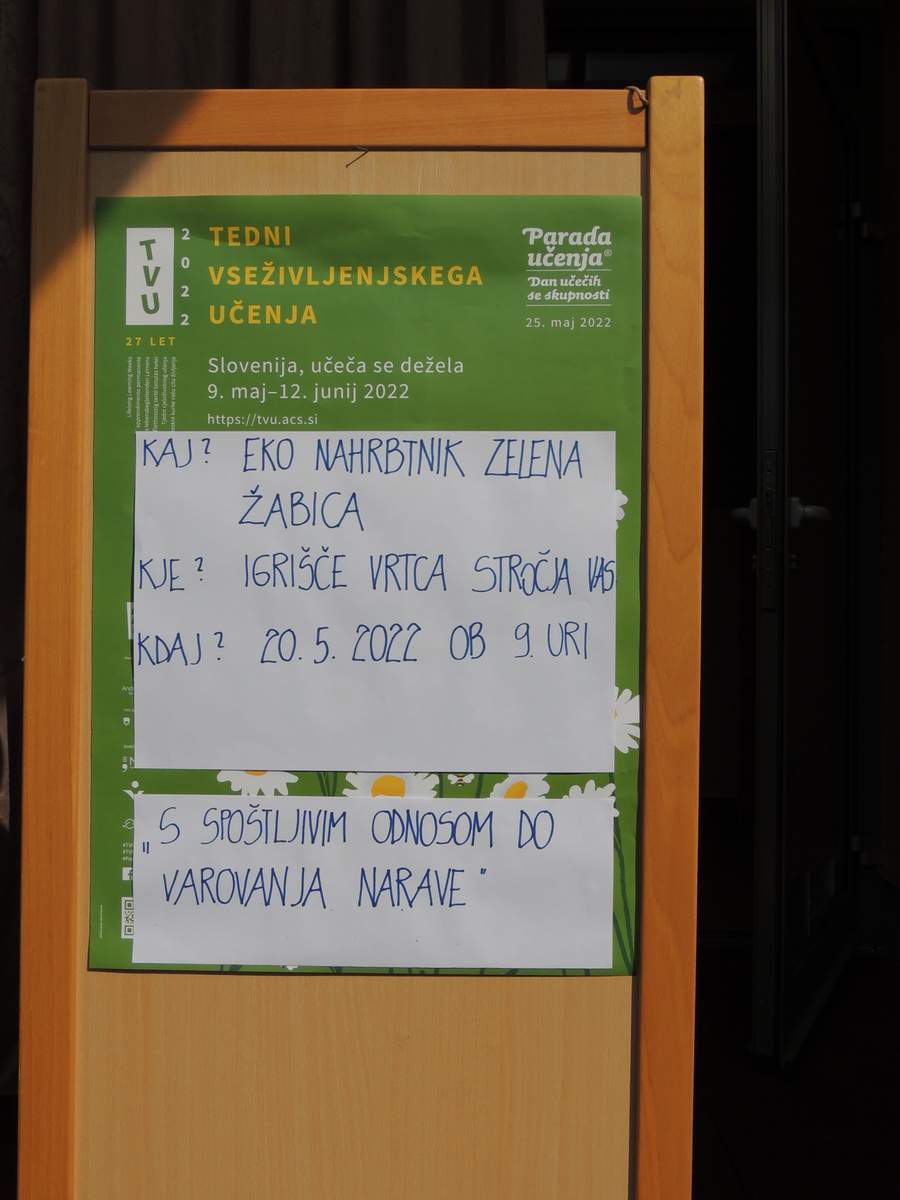 TVU
2022
27 LET
TEDNI
VSEŽIVLJENJSKEGA
UČENJA
Parada
učenja®
Dan učečih
se skupnosti
25. maj 2022
Slovenija, učeča se dežela
9. maj–12. junij 2022
https://tvu.acs.si
Lifelong Learning Weeks
KAJ? EKO NAHRBTNIK ZELENA
ŽABICA
KJE? IGRIŠČE VRTCA STROČJA VAS
KDAJ? 20. 5. 2022 OB 9. URI
„S SPOŠTLJIVIM ODNOSOM DO
VAROVANJA NARAVE"